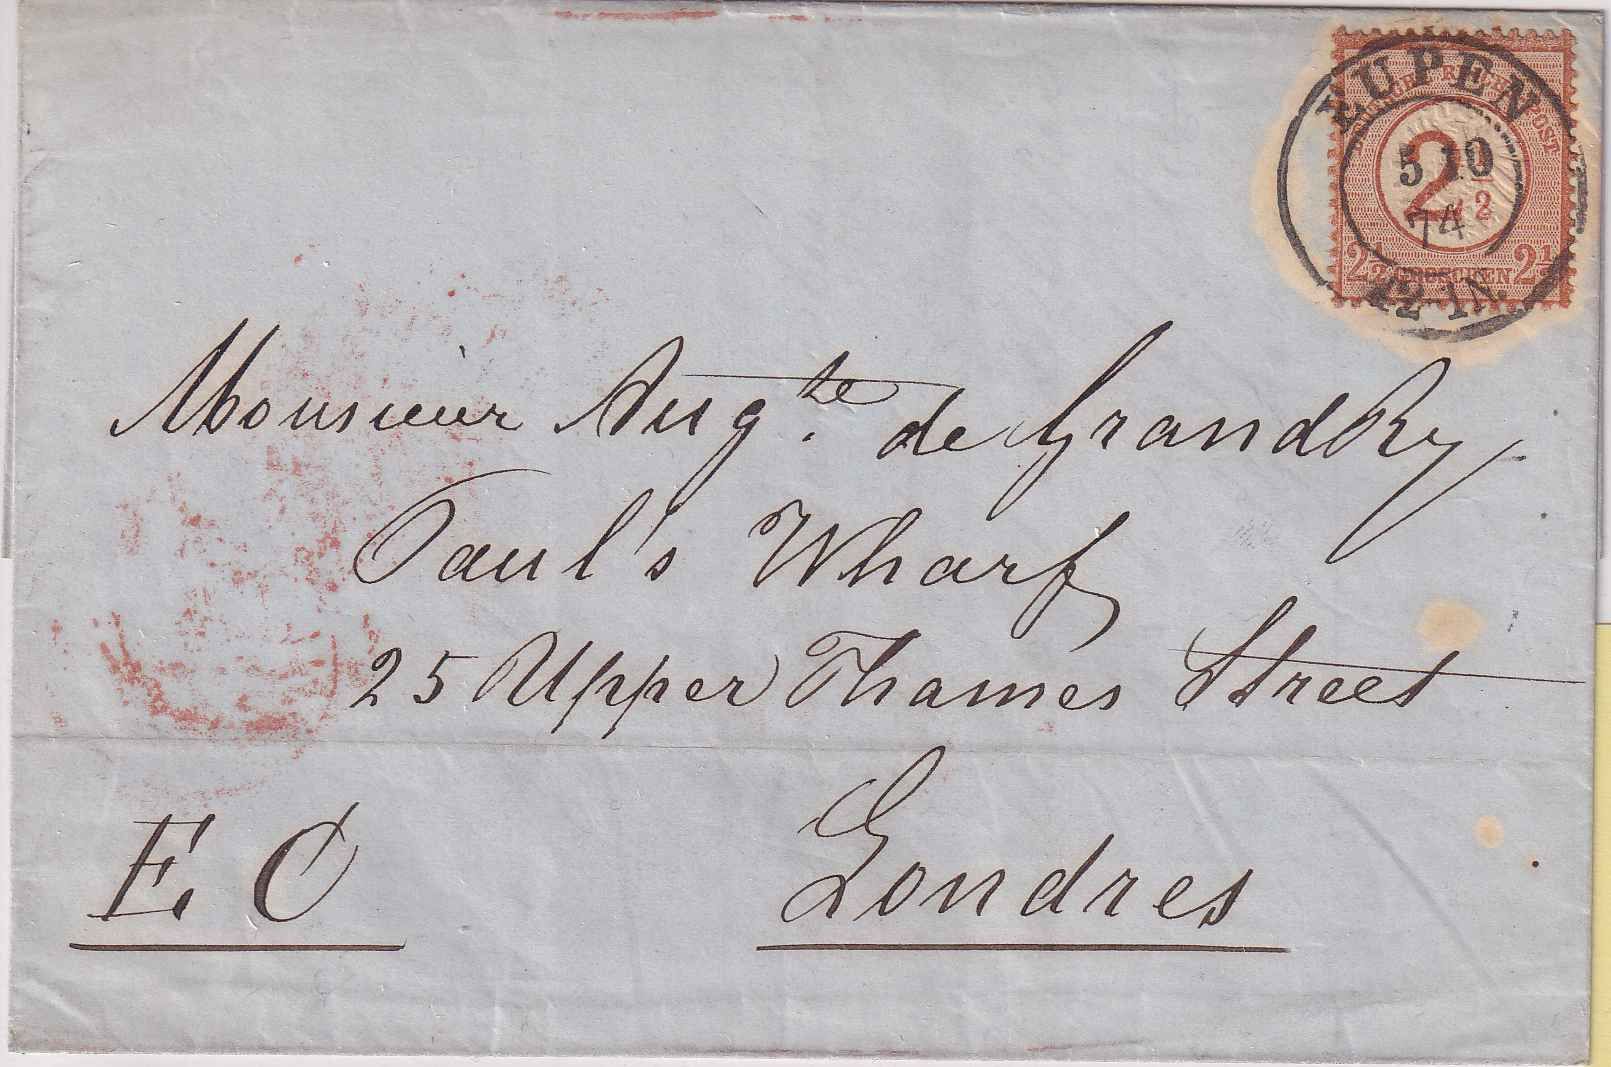 EUPEN
5 10
74
12-1N.
DEUTSCHE REICHS-POST
2 1/2
2 1/2 GROSCHEN 2 1/2
Monsieur Augte. de GrandRy
Paul's Wharf
25 Upper Thames Street
E C Londres